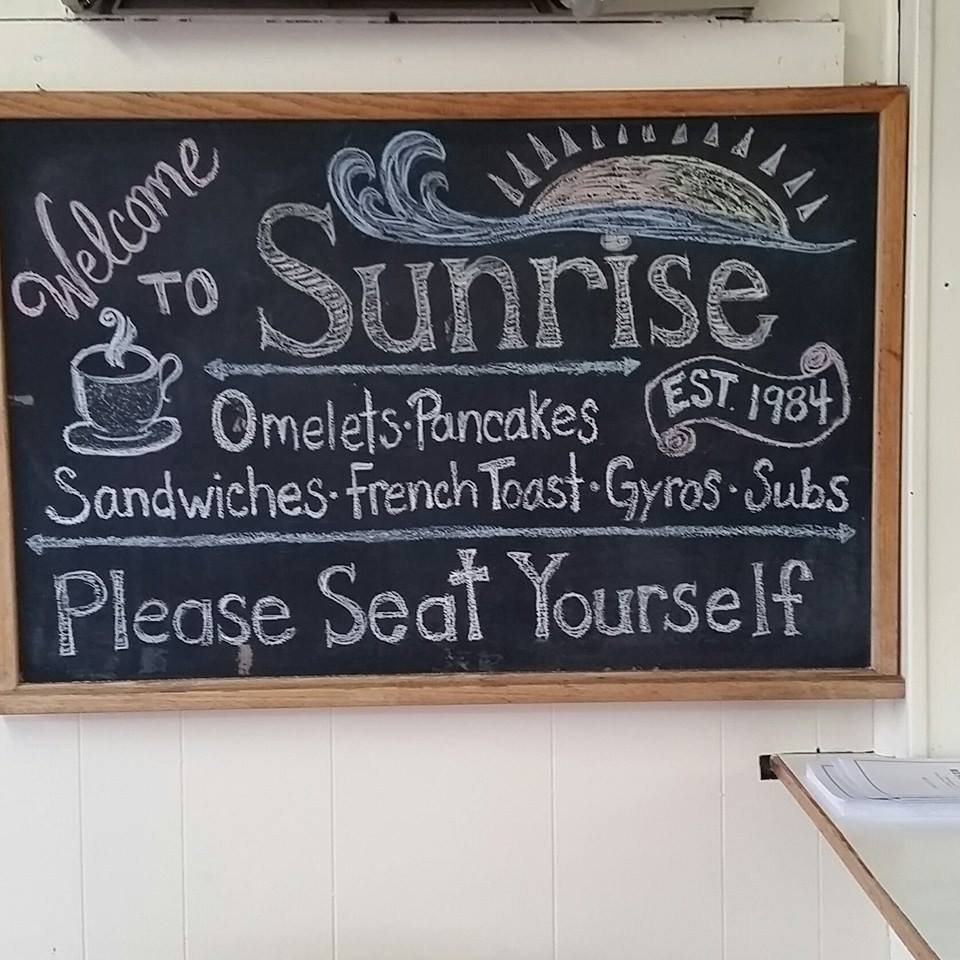 Welcome
TO
Sunrise
EST. 1984
Omelets·Pancakes
Sandwiches·French Toast·Gyros·Subs
Please Seat Yourself